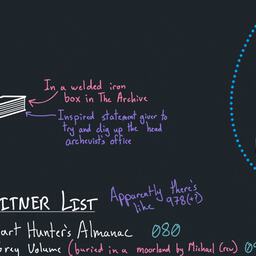 In a welded iron
box in The Archive
Inspired statement giver to
try and dig up the head
archivist's office
ITNER LIST
Apparently there's
like 978(+?)
art Hunter's Almanac 080
orey Volume (buried in a moorland by Michael Crew) 09